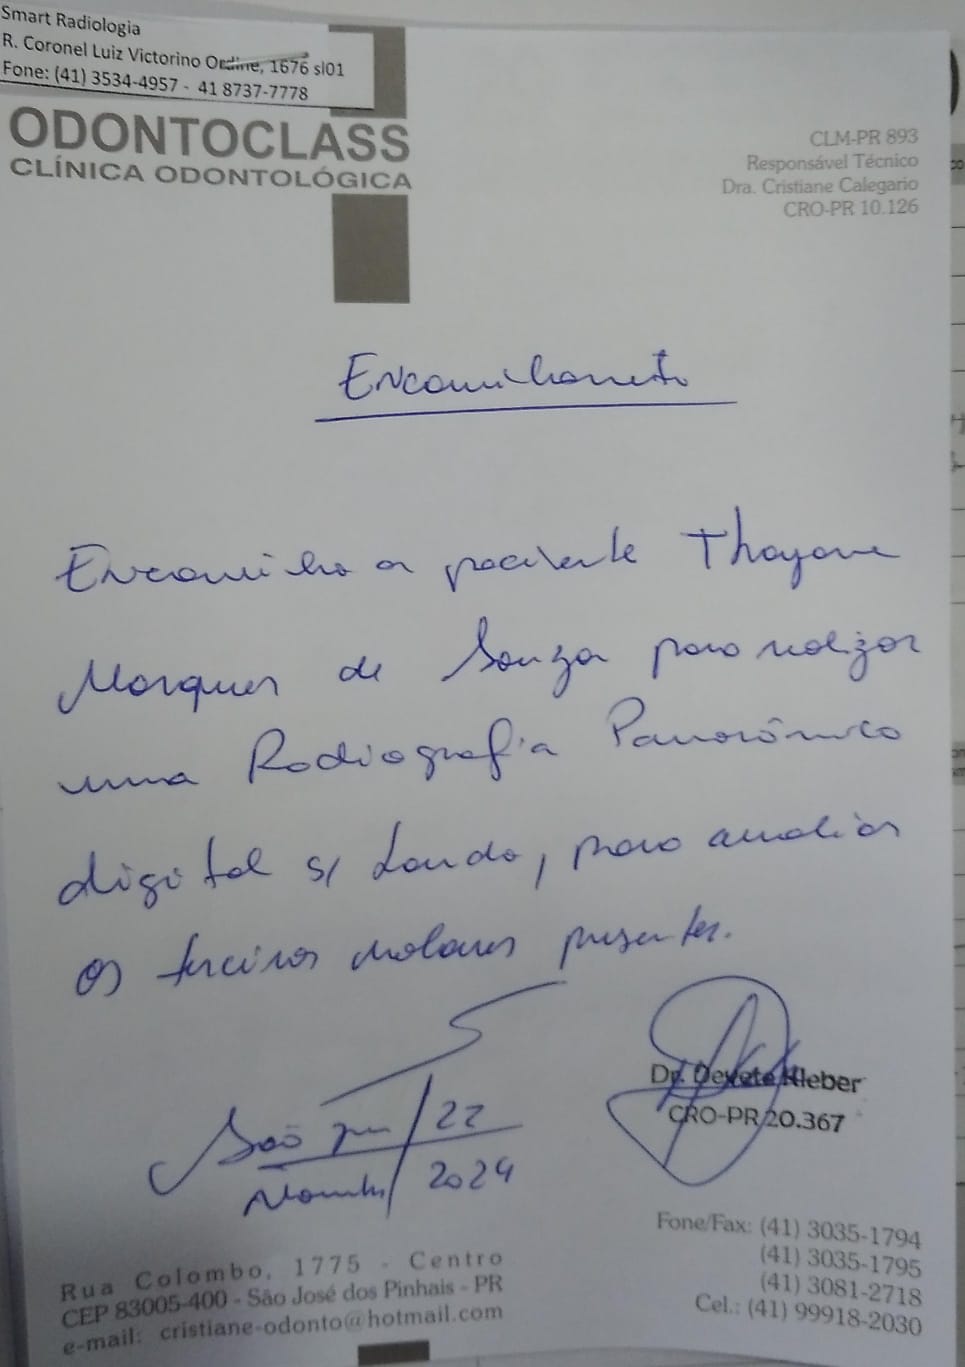 Smart Radiologia
R. Coronel Luiz Victorino Ordine, 1676 sl01
Fone: (41) 3534-4957 - 41 8737-7778
ODONTOCLASS
CLÍNICA ODONTOLÓGICA
CLM-PR 893
Responsável Técnico
Dra. Cristiane Calegario
CRO-PR 10.126
Encaminhamento
Encaminho a paciente Thayane
Marques de Souza para realizar
uma Radiografia Panorâmica
digital s/ Laudo, para avaliar
os terceiros molares presentes.
Dr. Devete Kleber
CRO-PR 20.367
São José / 22
Novembro / 2024
Fone/Fax: (41) 3035-1794
(41) 3035-1795
(41) 3081-2718
Cel.: (41) 99918-2030
Rua Colombo, 1775 - Centro
CEP 83005-400 - São José dos Pinhais - PR
e-mail: cristiane-odonto@hotmail.com